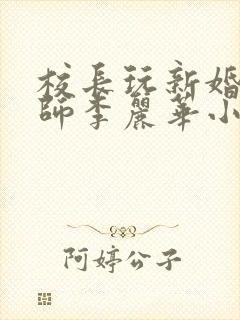 校長玩新婚
師李麗華小
阿婷公子